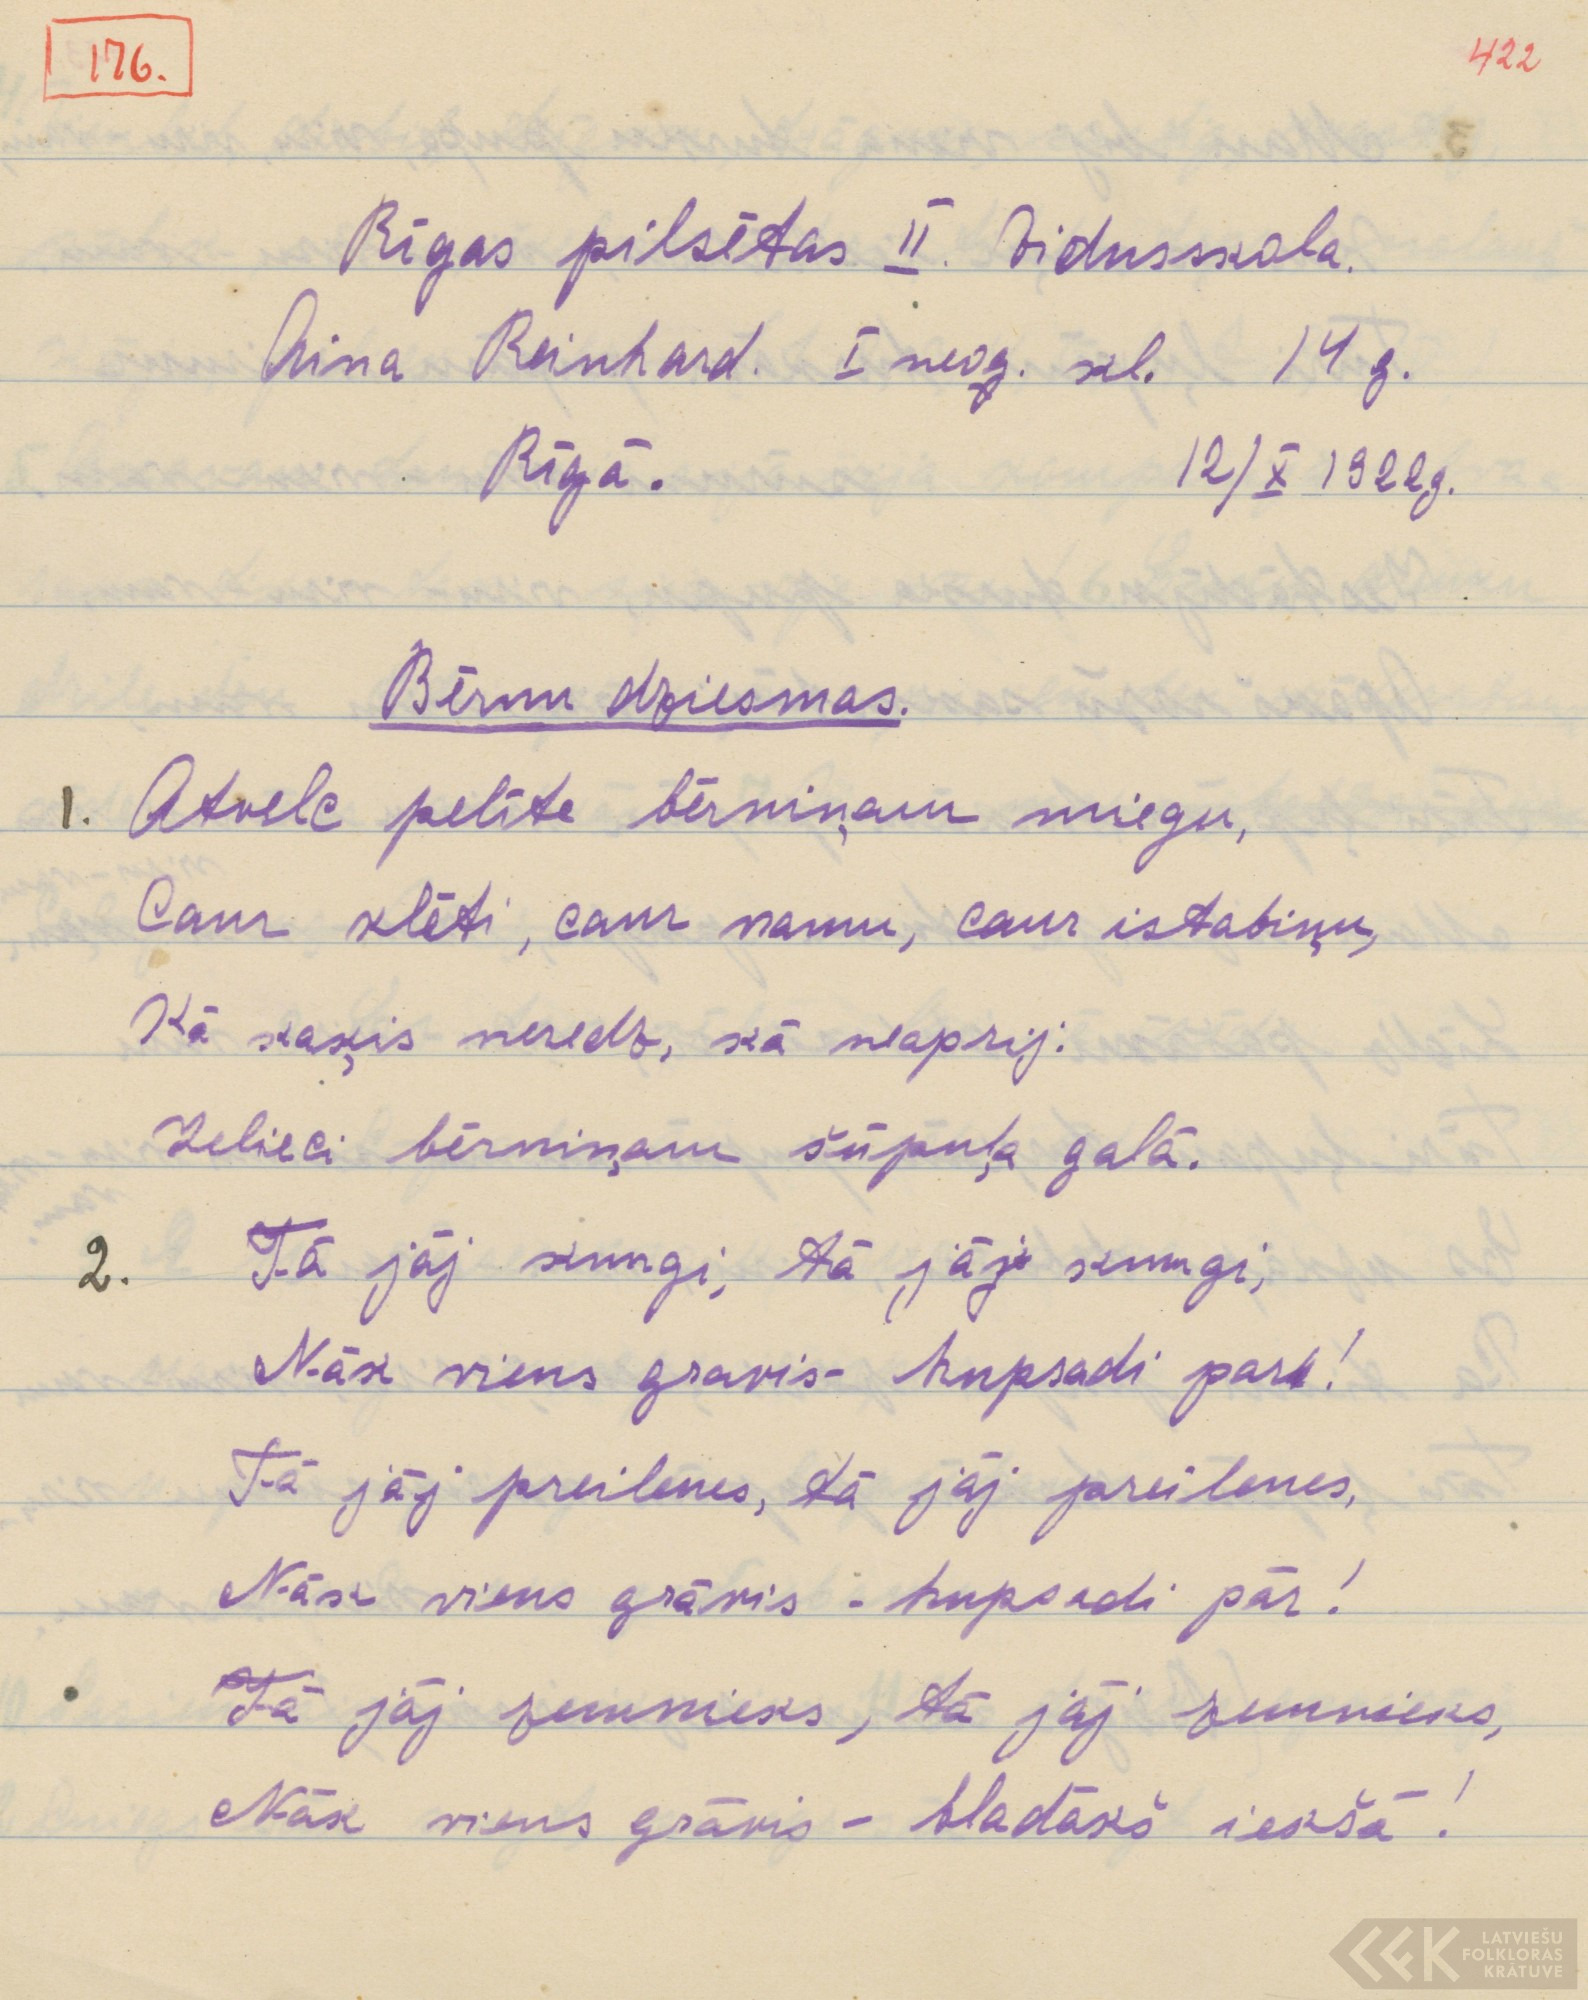 176.
422
Rīgas pilsētas II. vidusskola.
Aina Reinhard. I neog. kl. 14 g.
Rīgā. 12/X 1922g.
Bērnu dziesmas.
1. Atvelc pelīte bērniņam miegu,
Caur klēti, caur namu, caur istabiņu,
Kā kaķis neredz, kā neaprij.
Ieliec bērniņam šūpuļa galā.
2. Tā jāj kungi, tā jāj kungi,
Nāk viens gravis- hupsadi par!
Tā jāj preilenes, tā jāj preilenes,
Nāk viens grāvis - hupsadi pār!
Tā jāj zemnieks, tā jāj zemnieks,
Nāk viens grāvis - bladākš iekšā!
LATVIEŠU
FOLKLORAS
KRĀTUVE